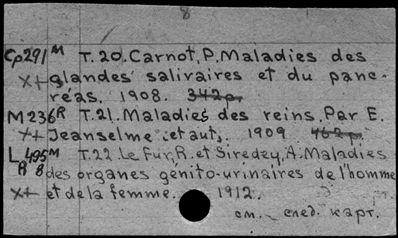 8
Cp291M T.20. Carnot, P. Maladies des
x+ glandes salivaires et du panc-
réas. 1908. 342p.
M236R T.21. Maladies des reins. Par E.
x+ Jeanselme et aut. 1909. 462p.
L495M T.22 Le Fur, R. et Siredey, A. Maladies
R8 des organes génito-urinaires de l'homme
x+ et de la femme. 1912.
см. след. карт.